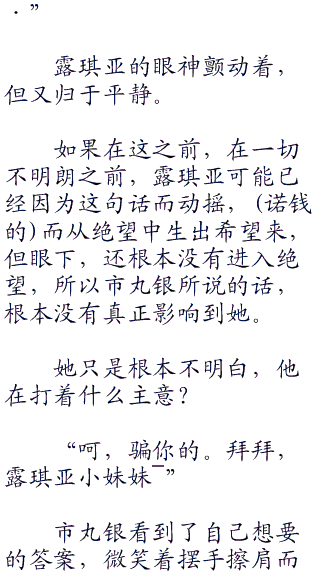 ．”
露琪亚的眼神颤动着，
但又归于平静。
如果在这之前，在一切
不明朗之前，露琪亚可能已
经因为这句话而动摇，(诺钱
的)而从绝望中生出希望来，
但眼下，还根本没有进入绝
望，所以市丸银所说的话，
根本没有真正影响到她。
她只是根本不明白，他
在打着什么主意？
“呵，骗你的。拜拜，
露琪亚小妹妹¯”
市丸银看到了自己想要
的答案，微笑着摆手擦肩而